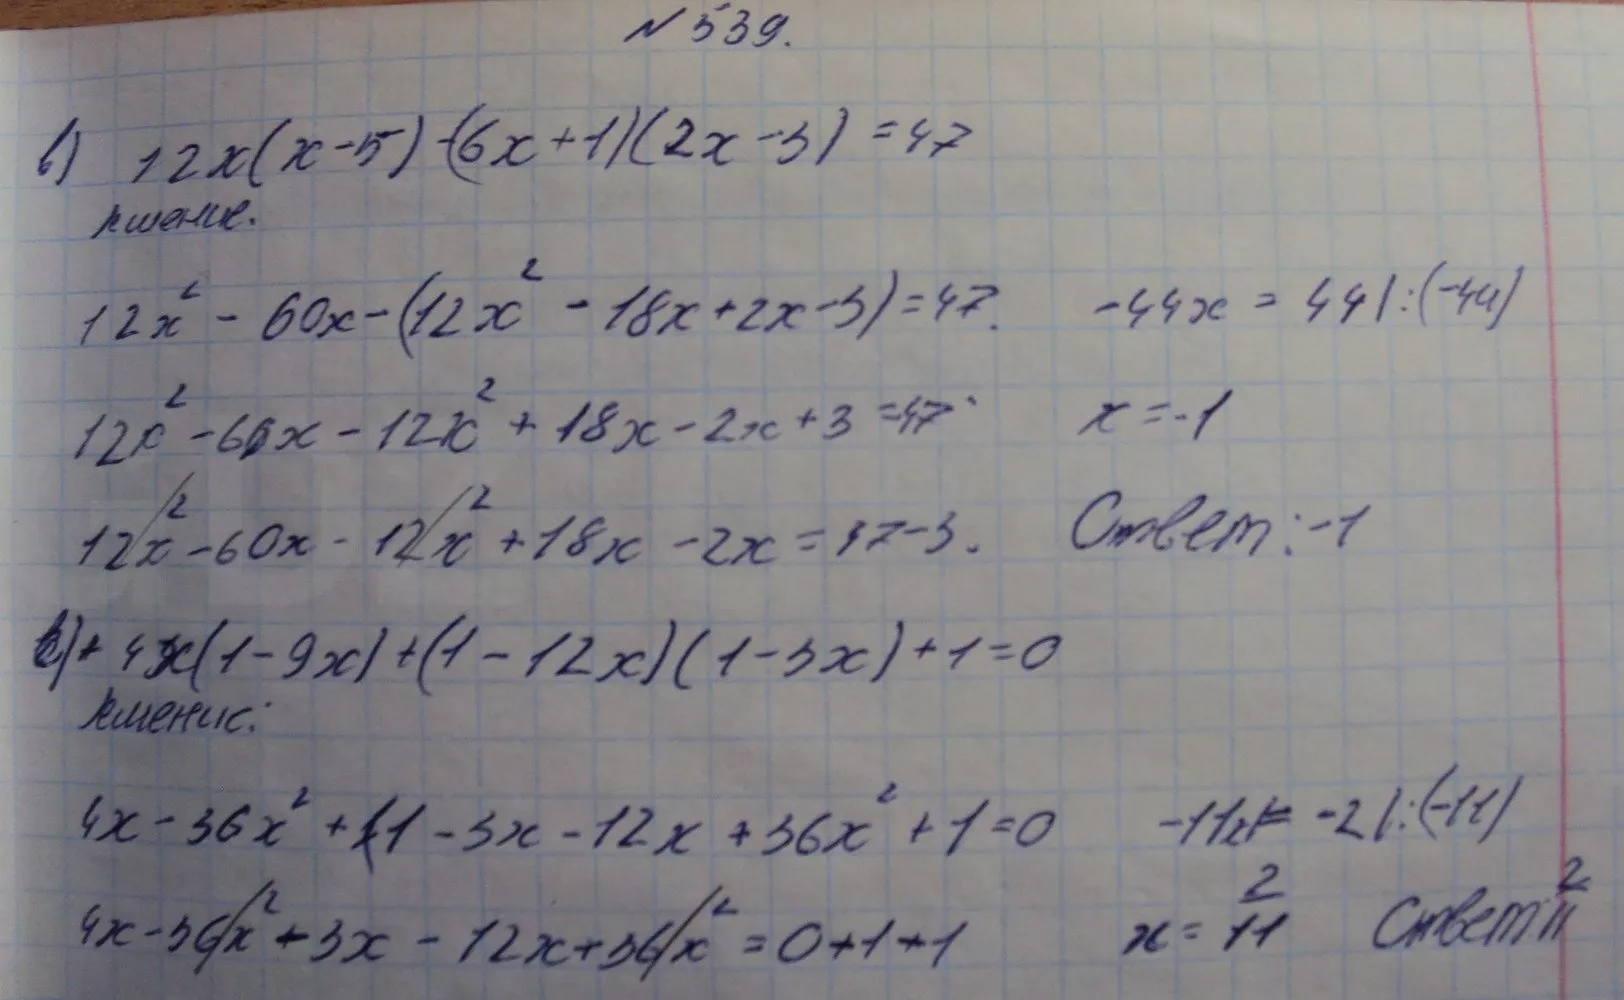 № 539.
в) 12x(x-5)-(6x+1)(2x-3)=47
решение.
12x² - 60x-(12x² - 18x+2x-3)=47.
12x² -60x - 12x² + 18x - 2x + 3 =47
12x² -60x - 12x² +18x -2x = 47-3.
-44x = 44 |:(-44)
x =-1
Ответ: -1
4x(1-9x)+(1-12x)(1-3x)+1=0
решение:
4x-36x² + 1-3x-12x+36x² +1=0
4x-36x² - 3x - 12x+36x² = 0+1+1
-11x = -2 |:(-11)
x = 2/11
Ответ: 2/11